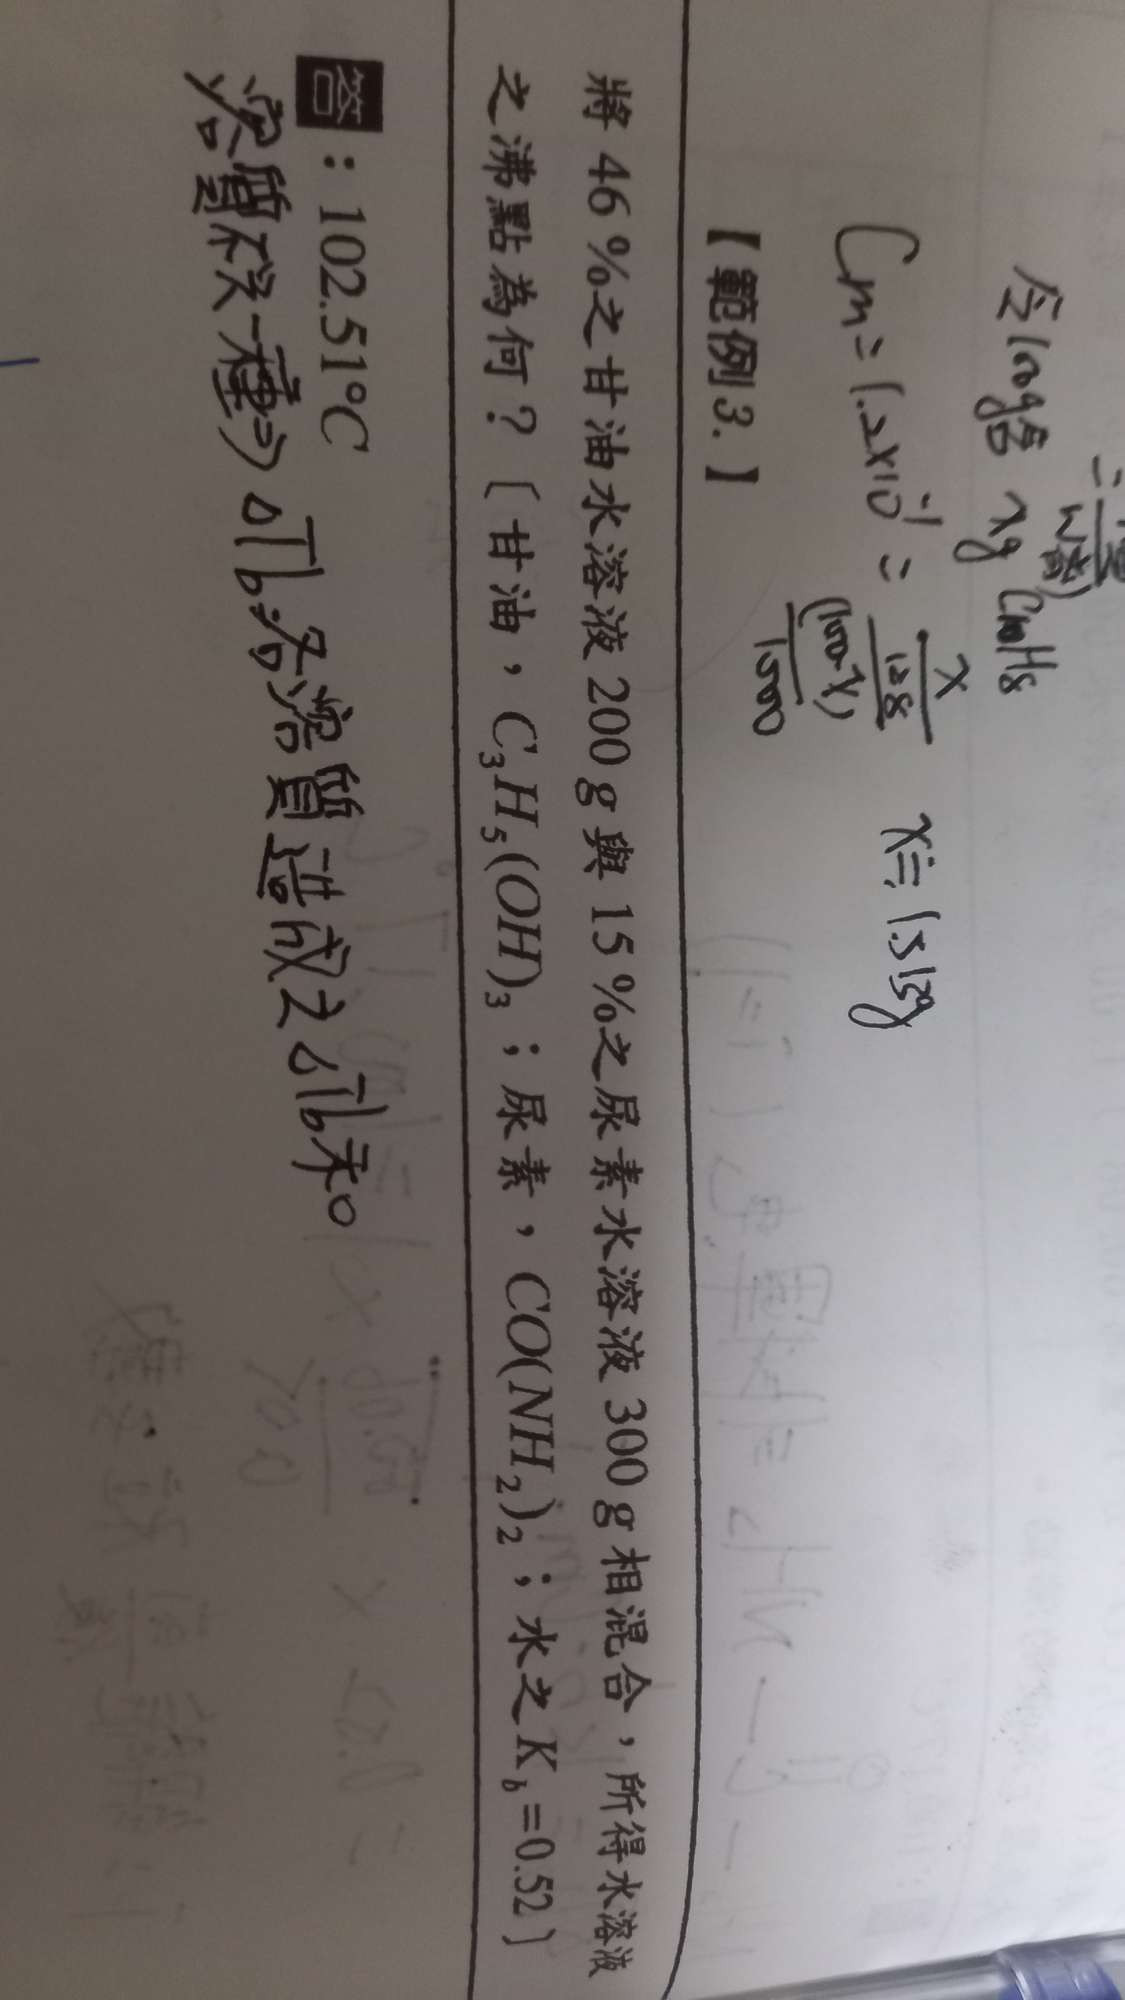 令100g含 xg C10H8
Cm=1.2×10⁻¹ = x/128 / (100-x)/1000 x≒1.513g
【範例3.】
將46%之甘油水溶液200g與15%之尿素水溶液300g相混合，所得水溶液
之沸點為何？〔甘油，C₃H₅(OH)₃；尿素，CO(NH₂)₂；水之K_b=0.52〕
答：102.51°C
溶質不只一種⇒ΔTb=各溶質造成之ΔTb和。